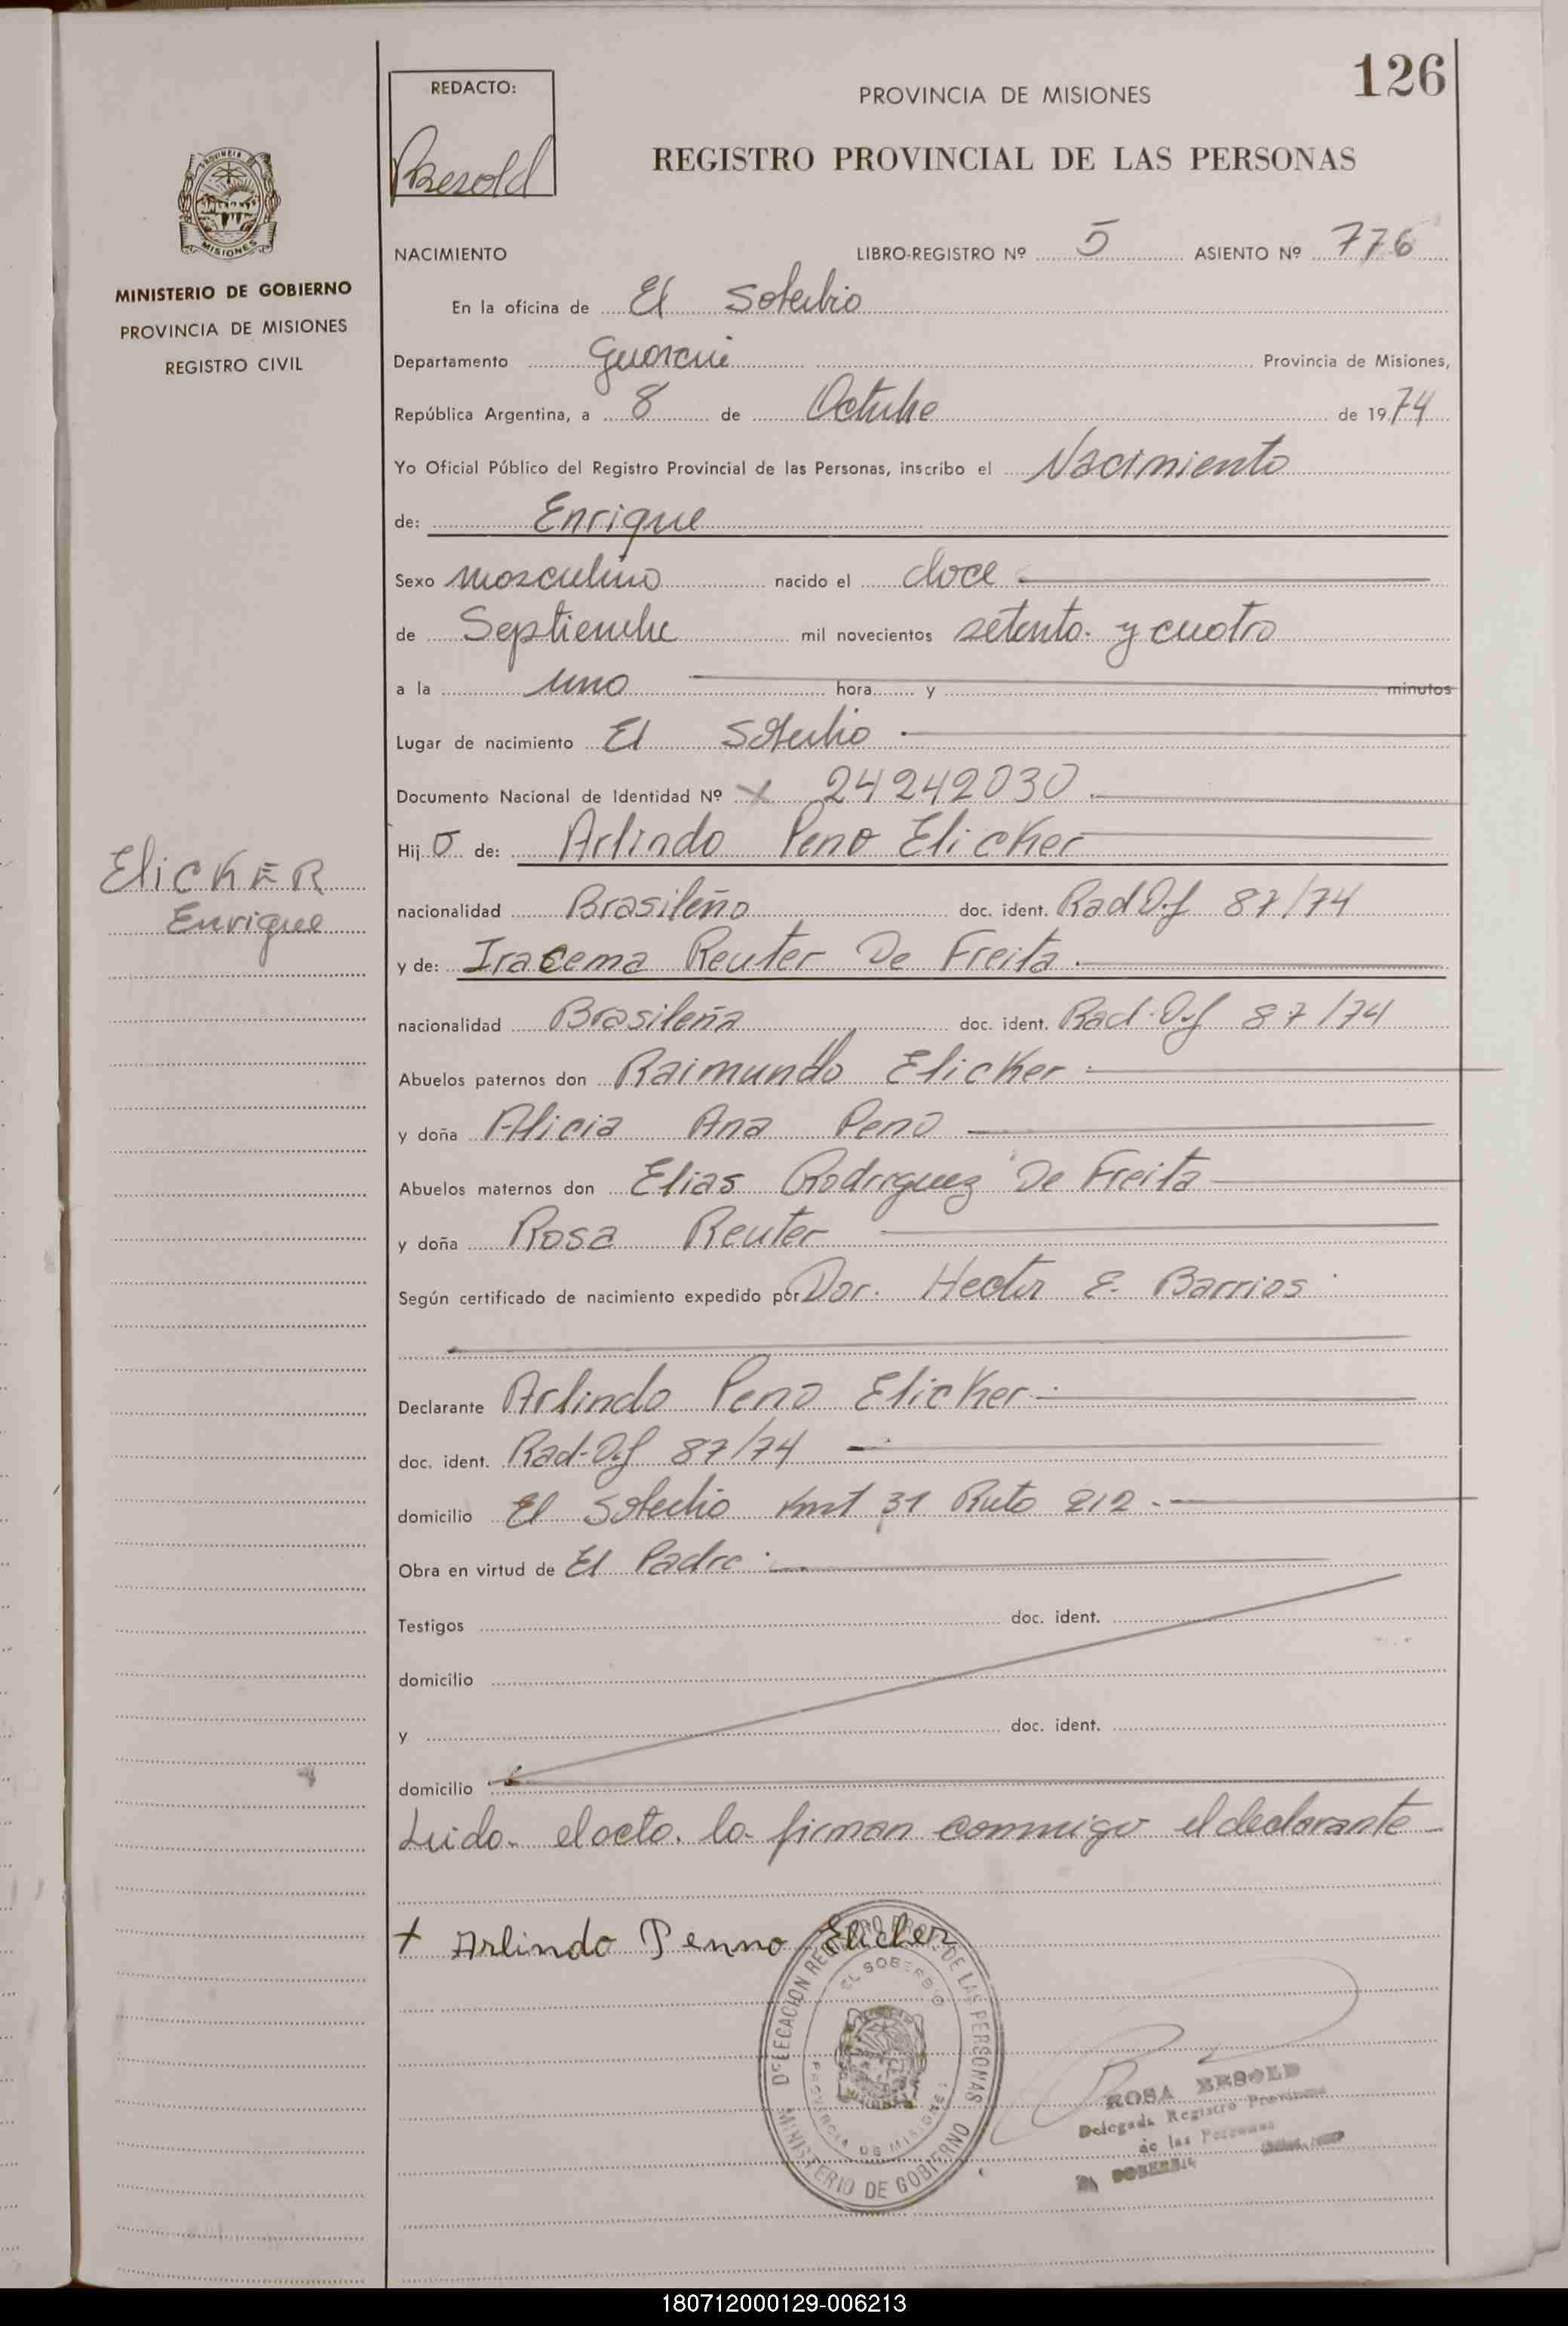 126
REDACTO:
Besold
PROVINCIA DE MISIONES
REGISTRO PROVINCIAL DE LAS PERSONAS
PROVINCIA DE
MISIONES
MINISTERIO DE GOBIERNO
PROVINCIA DE MISIONES
REGISTRO CIVIL
NACIMIENTO LIBRO-REGISTRO Nº 5 ASIENTO Nº 776
En la oficina de El Soberbio
Departamento Guarani Provincia de Misiones,
República Argentina, a 8 de Octubre de 1974
Yo Oficial Público del Registro Provincial de las Personas, inscribo el Nacimiento
de: Enrique
Sexo masculino nacido el doce
de Septiembre mil novecientos setenta y cuatro
a la una hora y minutos
Lugar de nacimiento El Soberbio
Documento Nacional de Identidad Nº X 24242030
Hijo de: Arlindo Peno Elicker
ElicKER
Enrique
nacionalidad Brasileño doc. ident. Rad Of 87/74
y de: Iracema Reuter De Freita
nacionalidad Brasileña doc. ident. Rad-Of 87/74
Abuelos paternos don Raimundo Elicker
y doña Alicia Ana Peno
Abuelos maternos don Elias Rodriguez De Freita
y doña Rosa Reuter
Según certificado de nacimiento expedido por Dor. Hector E. Barrios
Declarante Arlindo Peno Elicker
doc. ident. Rad-Of 87/74
domicilio El Soberbio kmt 31 Ruta 212
Obra en virtud de El Padre
Testigos doc. ident.
domicilio
y doc. ident.
domicilio
Leida el acta la firman conmigo el declarante
+ Arlindo Penno Elicker
DELEGACION REGISTRO PROV. DE LAS PERSONAS
EL SOBERBIO
PROVINCIA DE MISIONES
MINISTERIO DE GOBIERNO
ROSA BESOLD
Delegada Registro Provincial
de las Personas
EL SOBERBIO
180712000129-006213